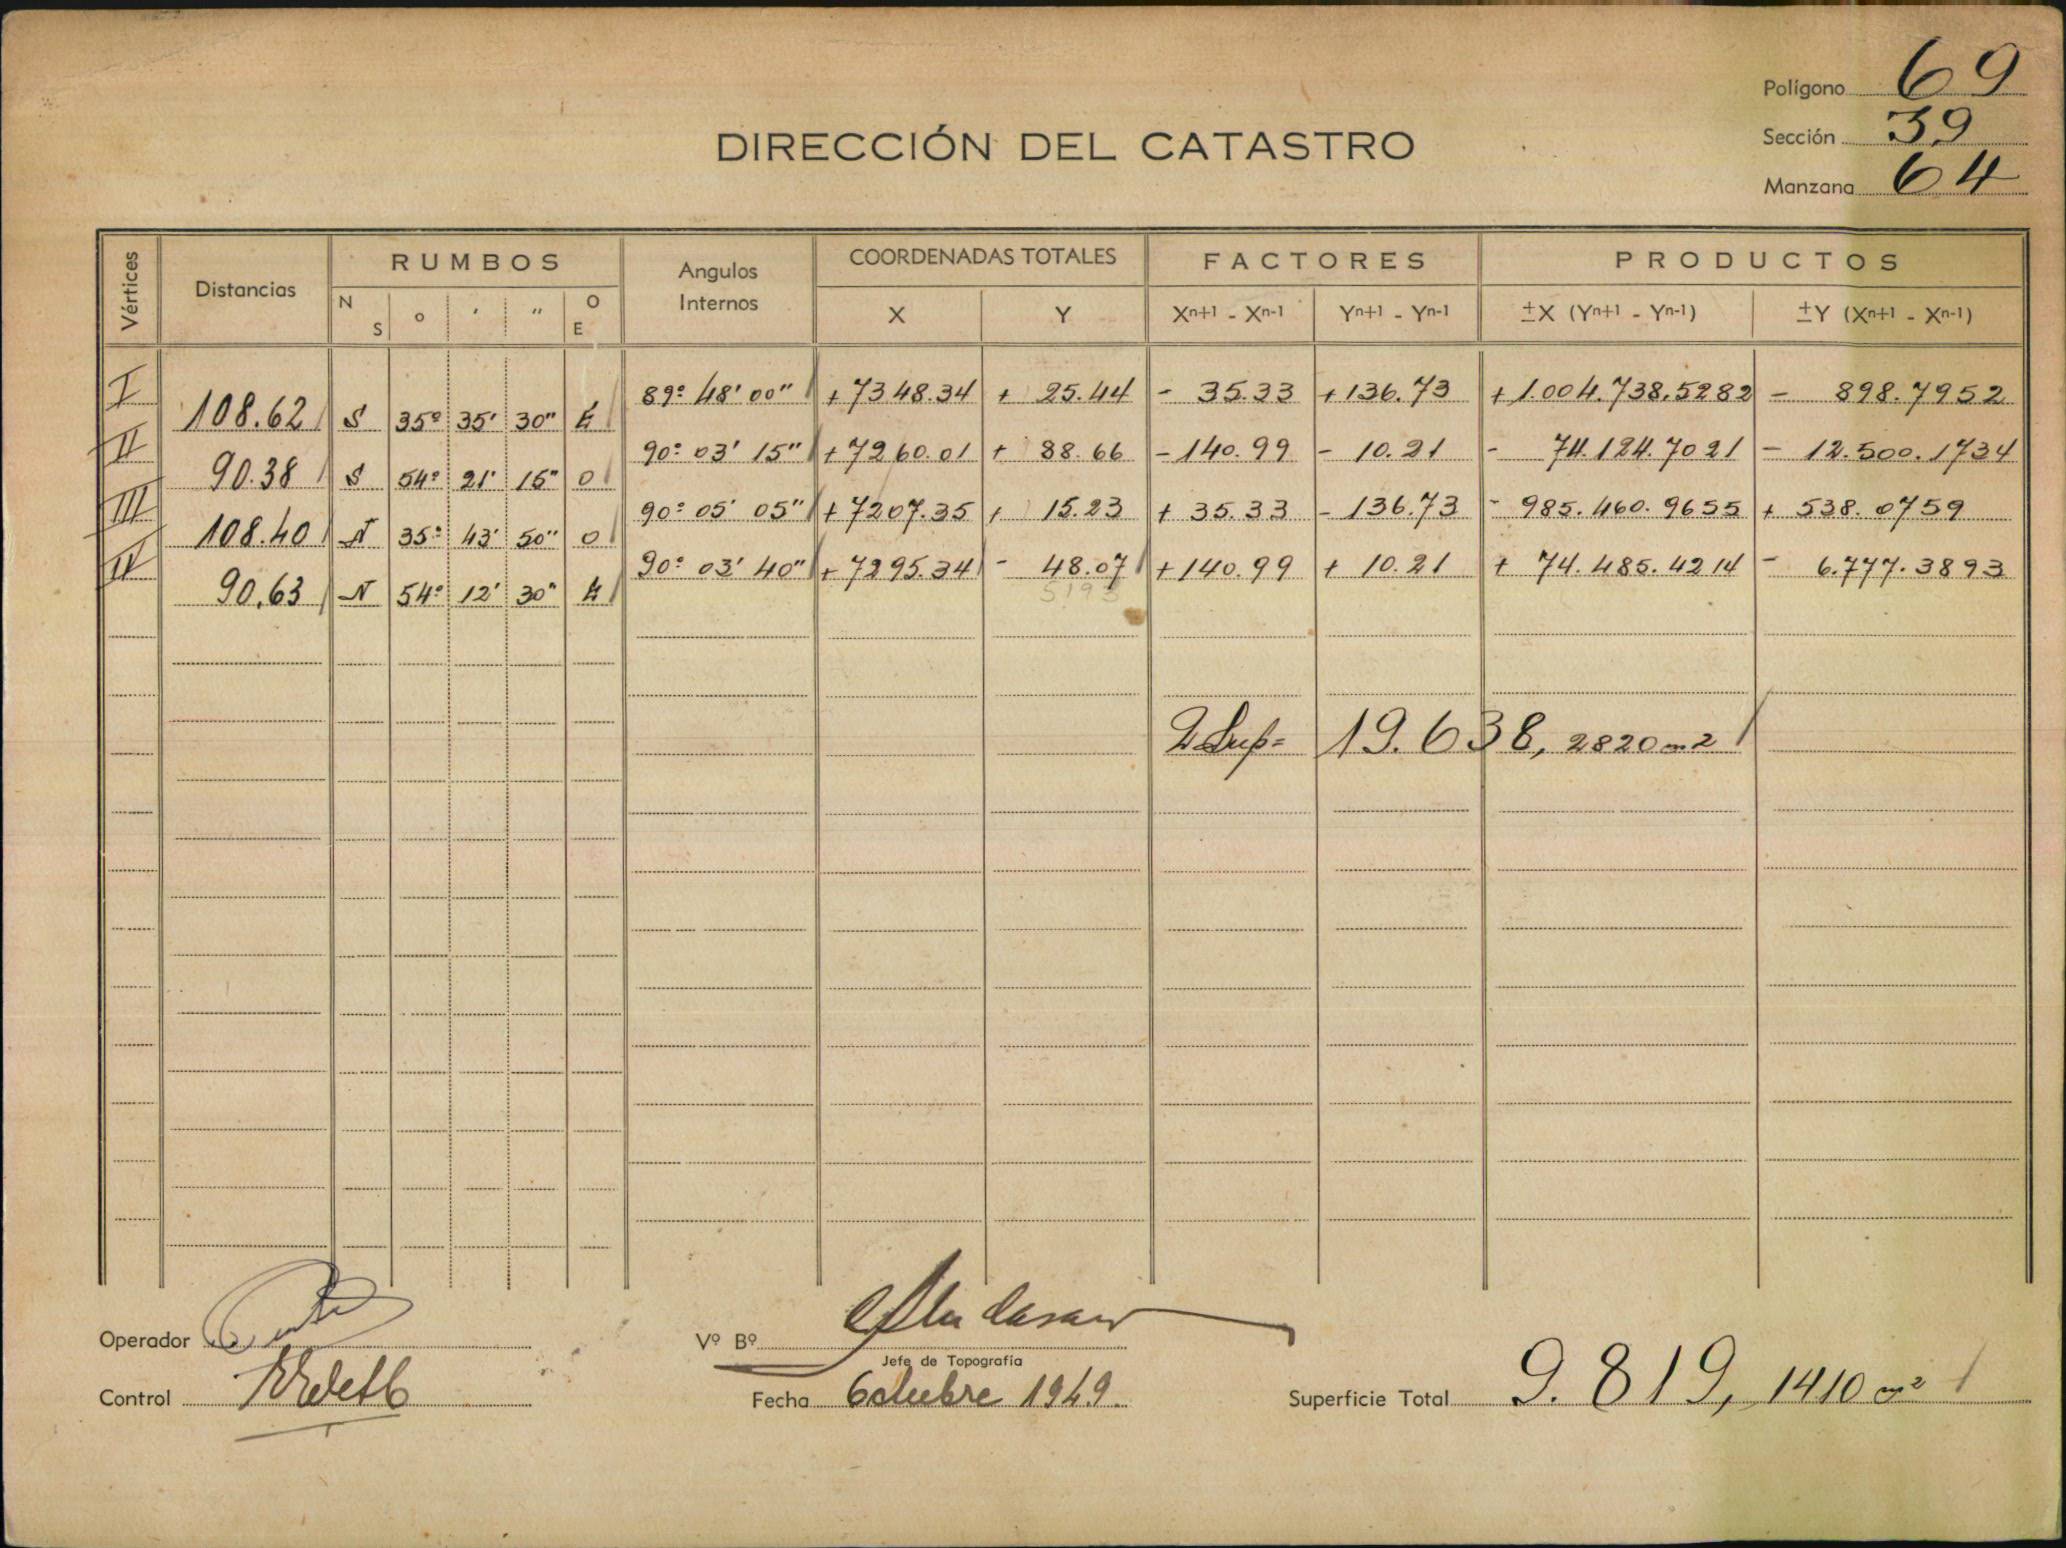 Polígono 69
DIRECCIÓN DEL CATASTRO
Sección 39
Manzana 64
Vértices Distancias RUMBOS Angulos Internos COORDENADAS TOTALES FACTORES PRODUCTOS
N S o ' " O E X Y Xn+1 - Xn-1 Yn+1 - Yn-1 ±X (Yn+1 - Yn-1) ±Y (Xn+1 - Xn-1)
I 89º 48' 00" +7348.34 + 25.44 - 35.33 +136.73 +1.004.738,5282 - 898.7952
108.62 S 35º 35' 30" E
II 90º 03' 15" +7260.01 + 88.66 -140.99 - 10.21 - 74.124.7021 - 12.500.1734
90.38 S 54º 21' 15" O
III 90º 05' 05" +7207.35 + 15.23 + 35.33 - 136.73 - 985.460.9655 + 538.0759
108.40 N 35º 43' 50" O
IV 90º 03' 40" +7295.34 - 48.07 +140.99 + 10.21 + 74.485.4214 - 6.777.3893
90.63 N 54º 12' 30" E
2 Sup= 19.638, 2820 m2
Operador
Vº Bº
Jefe de Topografía
Control
Fecha Octubre 1949.
Superficie Total 9.819, 1410 m²